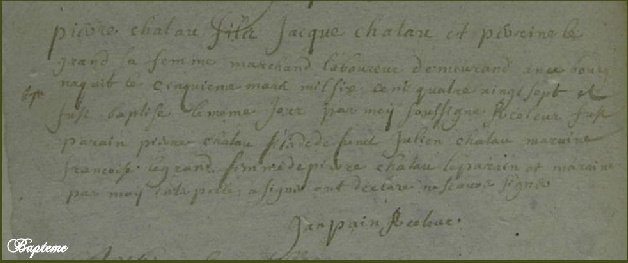 pierre chalau fils Jacque chalau et perrine le
grand sa femme marchand laboureur demeurand au bourg
naquit le cinquieme mars mil six cent quatre vingt sept et
fust baptise le mesme jour par moy soussigne Recteur fust
parain pierre chalau fils de defunct Julien chalau maraine
francoise legrand femme de pierre chalau le parain et maraine
par moy interpelles a signé ont declare ne scavoir signé
Jan pain Recteur.
Bapteme